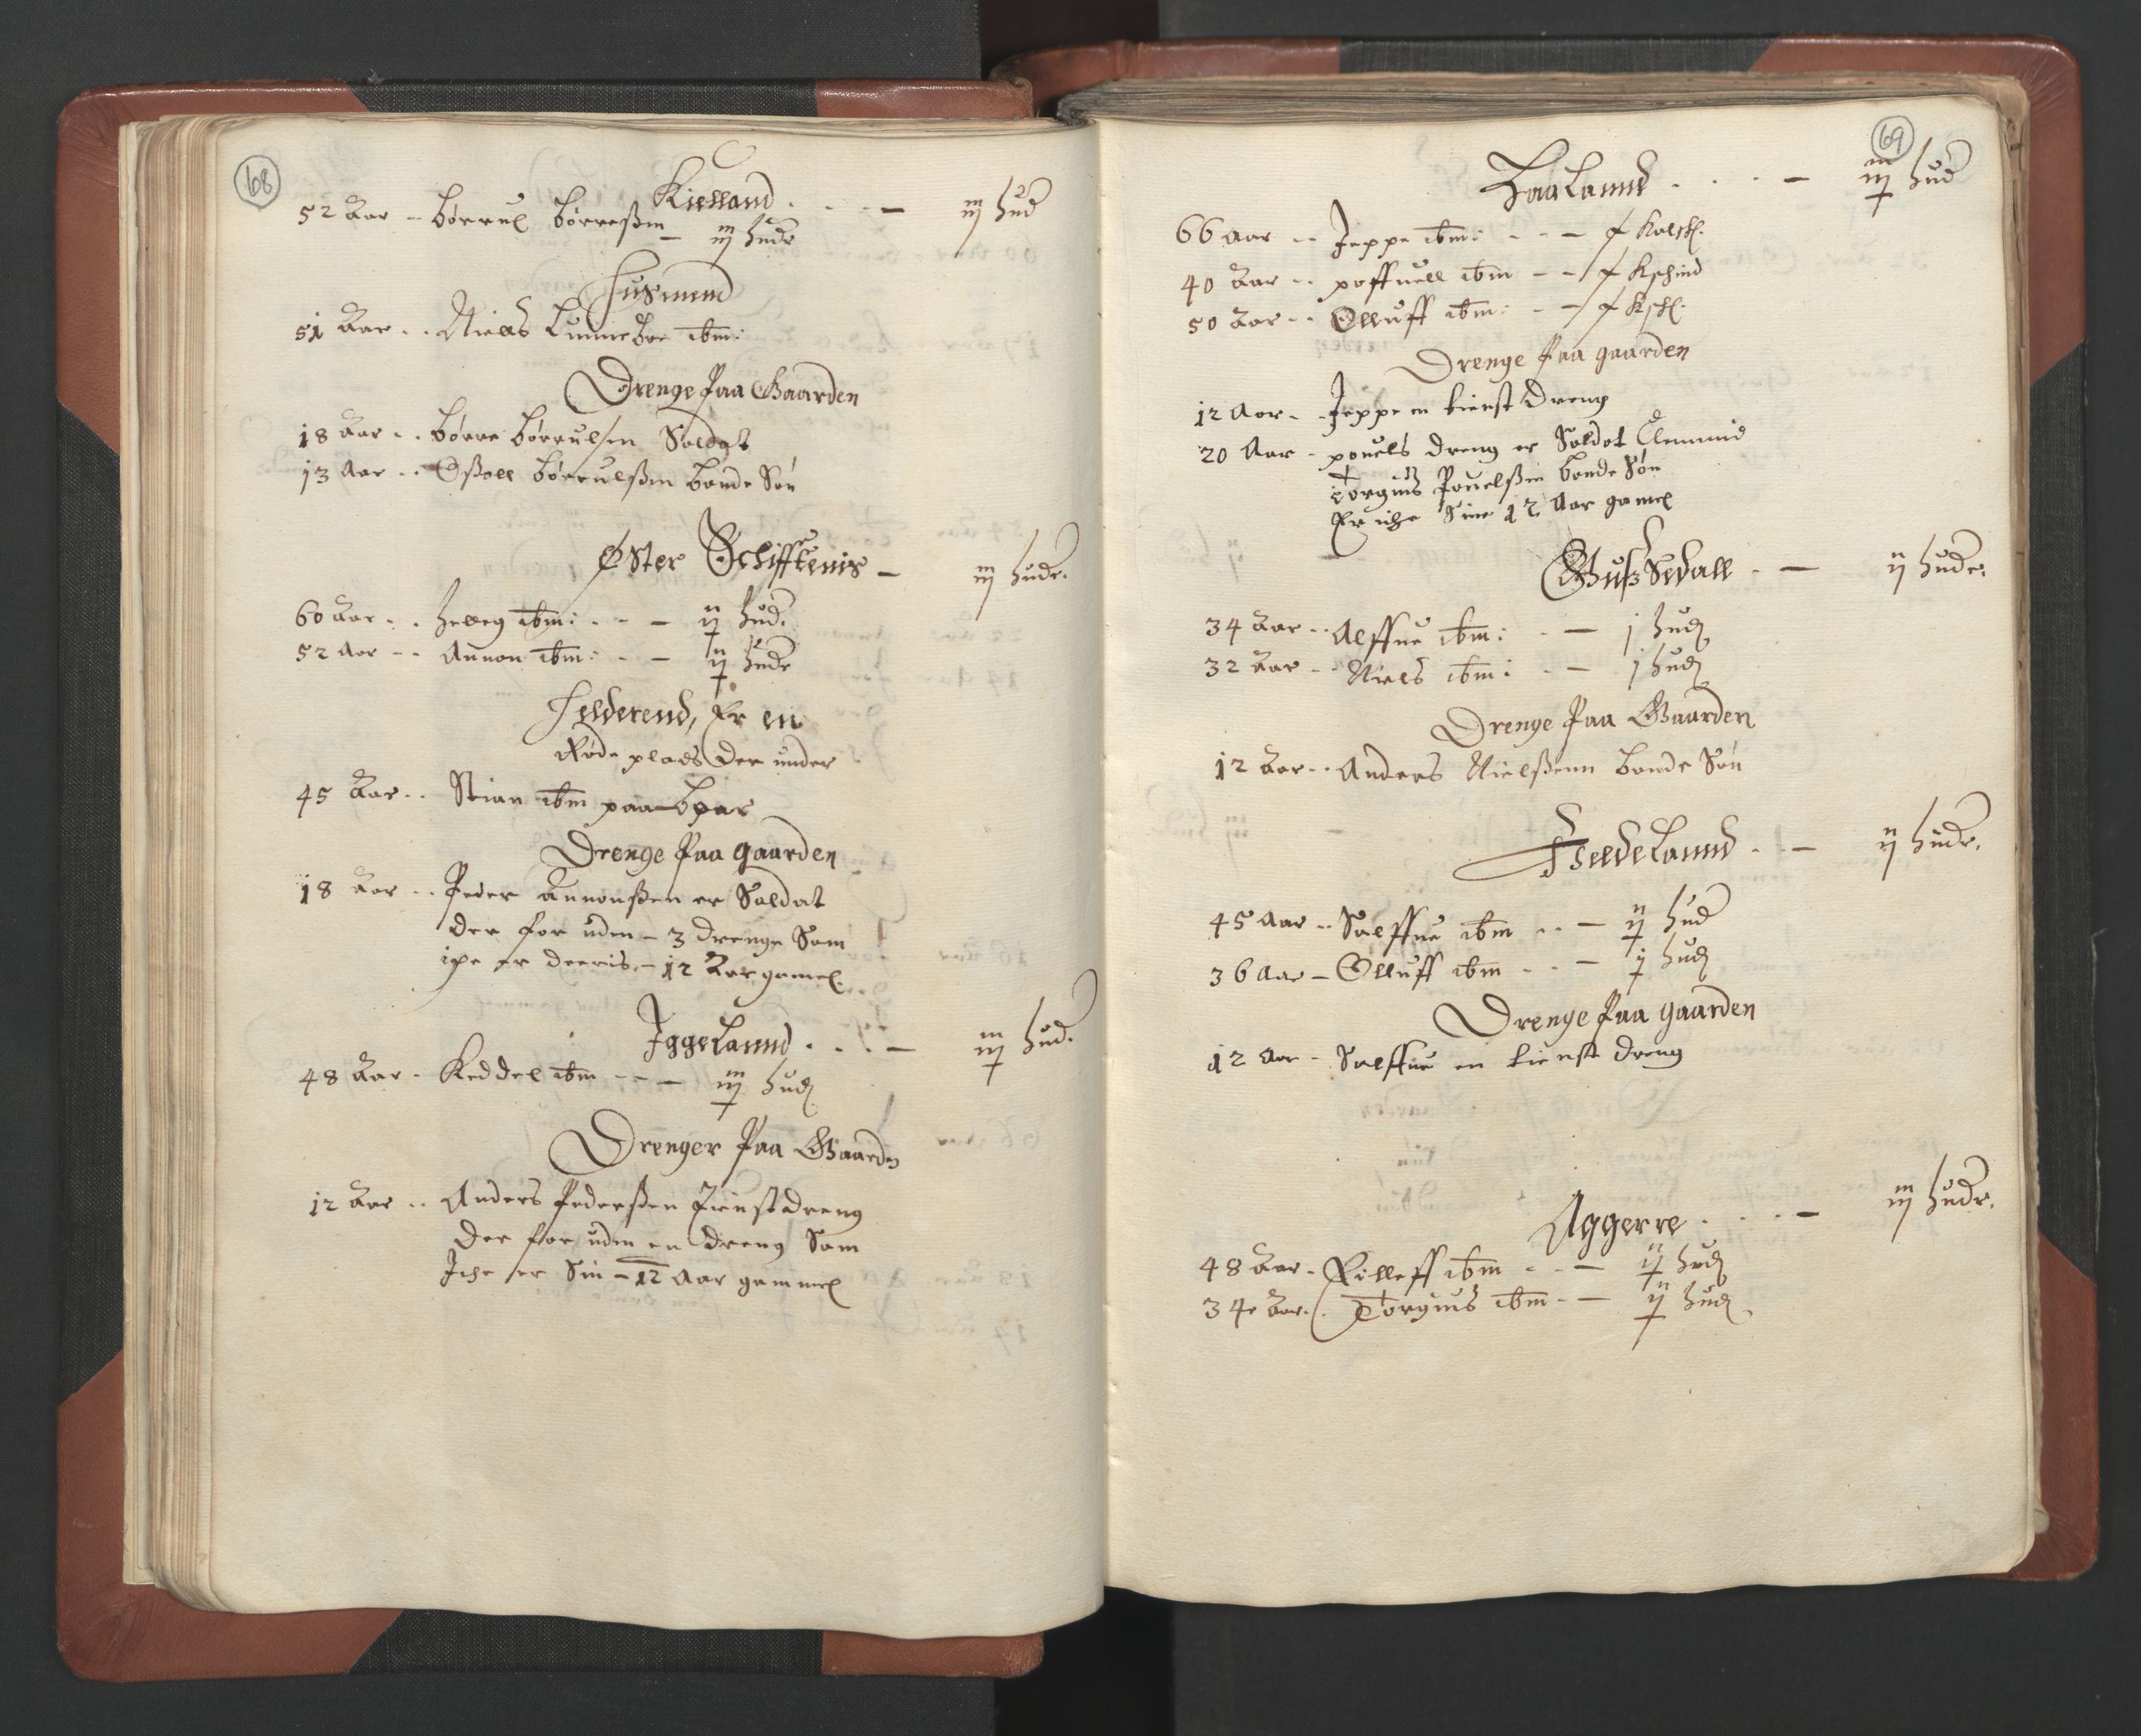 68
Kielland . . . – iij hud
52 Aar – børrul børreßen – iij hude
Husmend
51 Aar . . Niels Lunne boe ibm:
Drenge Paa Gaarden
18 Aar . . børre børrulsen Soldat
13 Aar . . Oßoll børrulßen bonde Søn
Øster Schifftenis – iij hude.
60 Aar . . Helleg ibm: . . – ij hud.
52 Aar – – Annon ibm: . . – ij hude
Helderend, Er en
Øde plads Der under
45 Aar . . Stian ibm paaboar
Drenge Paa gaarden
18 Aar . . Peder Annonßen er Soldat
der for uden – 3 drenge Som
iche er deeris – 12 Aar gamel.
Iggelannd . . . – iij hud.
48 Aar . Keddel ibm – – – iij hud
Drenger Paa Gaarden
12 Aar . . Anders Pederßen Tienstdreng
Der for uden en dreng Som
Iche er Sin – 12 Aar gammel
69
Haalannd . . . – iij hud
66 Aar – – Jeppe ibm: – – – j Kalsk.
40 Aar . . poffuell ibm – – j Kschind
50 Aar – – Olluff ibm: – – j Ksk.
Drenge Paa gaarden
12 Aar – Jeppe en tienst Dreng
20 Aar – pouels dreng er Soldat Clemend
Torgius Pouelßen bonde Søn
Er iche Sine 12 Aar gamel
Gußedall . – ij hude.
34 Aar . . Alffue ibm: . – j hud
32 Aar – – Niels ibm: . – j hud
Drenge Paa Gaarden
12 Aar . . Anders Nielßenn bonde Søn
Fseedelannd . – ij hude.
45 Aar . . Salffue ibm . . – ij hud
36 Aar – Olluff ibm . . – j hud
Drenge Paa gaarden
12 Aar – Salffue en tienst dreng
Aggerre . . . – iij hude.
48 Aar . Eilleff ibm . . – ij hud
34 Aar . . Torgius ibm – – ij hud